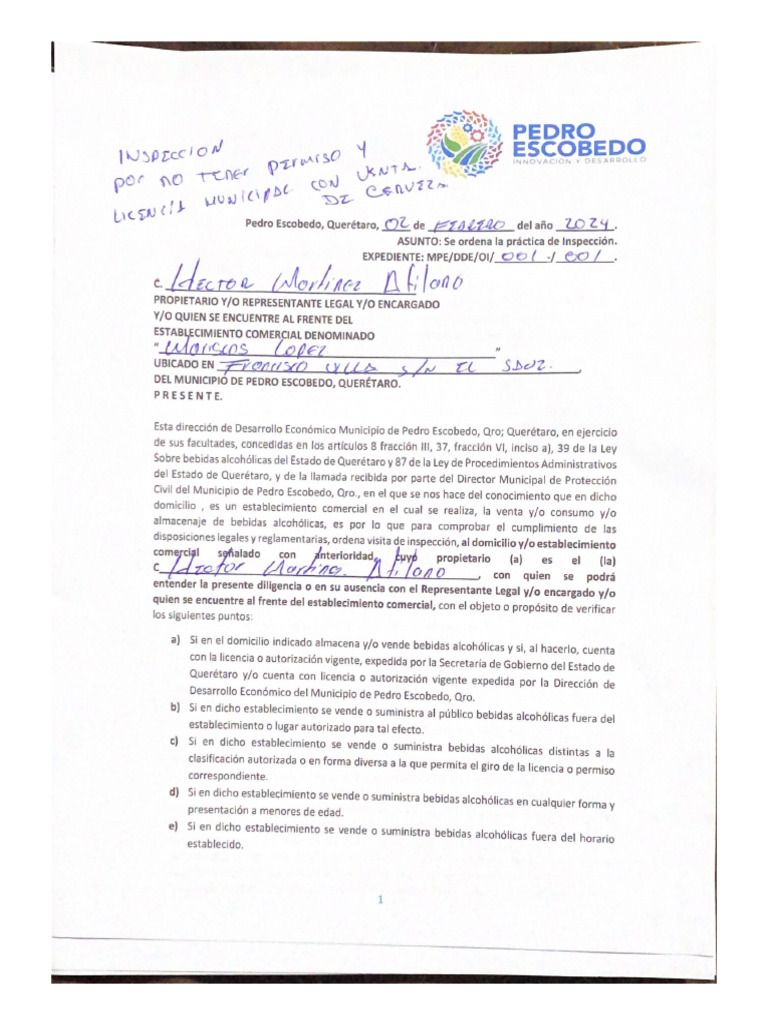 PEDRO
ESCOBEDO
INNOVACIÓN Y DESARROLLO
INSPECCION
POR NO TENER PERMISO Y
LICENCIA MUNICIPAL CON VENTA
DE CERVEZA
Pedro Escobedo, Querétaro, 02 de FEBRERO del año 2024.
ASUNTO: Se ordena la práctica de Inspección.
EXPEDIENTE: MPE/DDE/OI/ 001 -/ 001.
C. Hector Martinez Atilano
PROPIETARIO Y/O REPRESENTANTE LEGAL Y/O ENCARGADO
Y/O QUIEN SE ENCUENTRE AL FRENTE DEL
ESTABLECIMIENTO COMERCIAL DENOMINADO
"Mariscos Lopez"
UBICADO EN Francisco Villa S/N EL SAUZ.,
DEL MUNICIPIO DE PEDRO ESCOBEDO, QUERÉTARO.
P R E S E N T E.
Esta dirección de Desarrollo Económico Municipio de Pedro Escobedo, Qro; Querétaro, en ejercicio
de sus facultades, concedidas en los artículos 8 fracción III, 37, fracción VI, inciso a), 39 de la Ley
Sobre bebidas alcohólicas del Estado de Querétaro y 87 de la Ley de Procedimientos Administrativos
del Estado de Querétaro, y de la llamada recibida por parte del Director Municipal de Protección
Civil del Municipio de Pedro Escobedo, Qro., en el que se nos hace del conocimiento que en dicho
domicilio , es un establecimiento comercial en el cual se realiza, la venta y/o consumo y/o
almacenaje de bebidas alcohólicas, es por lo que para comprobar el cumplimiento de las
disposiciones legales y reglamentarias, ordena visita de inspección, al domicilio y/o establecimiento
comercial señalado con anterioridad, cuyo propietario (a) es el (la)
C Hector Martinez Atilano, con quien se podrá
entender la presente diligencia o en su ausencia con el Representante Legal y/o encargado y/o
quien se encuentre al frente del establecimiento comercial, con el objeto o propósito de verificar
los siguientes puntos:
a) Si en el domicilio indicado almacena y/o vende bebidas alcohólicas y si, al hacerlo, cuenta
con la licencia o autorización vigente, expedida por la Secretaría de Gobierno del Estado de
Querétaro y/o cuenta con licencia o autorización vigente expedida por la Dirección de
Desarrollo Económico del Municipio de Pedro Escobedo, Qro.
b) Si en dicho establecimiento se vende o suministra al público bebidas alcohólicas fuera del
establecimiento o lugar autorizado para tal efecto.
c) Si en dicho establecimiento se vende o suministra bebidas alcohólicas distintas a la
clasificación autorizada o en forma diversa a la que permita el giro de la licencia o permiso
correspondiente.
d) Si en dicho establecimiento se vende o suministra bebidas alcohólicas en cualquier forma y
presentación a menores de edad.
e) Si en dicho establecimiento se vende o suministra bebidas alcohólicas fuera del horario
establecido.
1